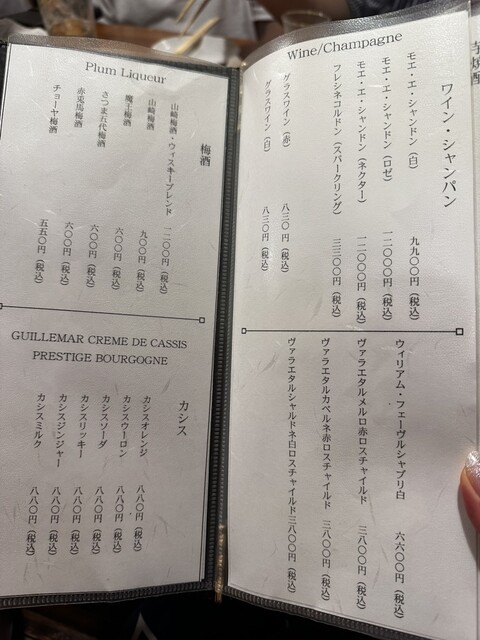 芋焼酎
Wine/Champagne
ワイン・シャンパン
モエ・エ・シャンドン(白) 九九〇〇円(税込)
モエ・エ・シャンドン(ロゼ) 一二〇〇〇円(税込)
モエ・エ・シャンドン(ネクター) 一二〇〇〇円(税込)
フレシネコルドン(スパークリング) 三三〇〇円(税込)
グラスワイン(赤) 八三〇円(税込)
グラスワイン(白) 八三〇円(税込)
ウィリアム・フェーヴルシャブリ白 六六〇〇円(税込)
ヴァラエタルメルロ赤ロスチャイルド 三八〇〇円(税込)
ヴァラエタルカベルネ赤ロスチャイルド 三八〇〇円(税込)
ヴァラエタルシャルドネ白ロスチャイルド 三八〇〇円(税込)
Plum Liqueur
梅酒
山崎梅酒・ウィスキーブレンド 一二〇〇円(税込)
山崎梅酒 九〇〇円(税込)
魔王梅酒 六〇〇円(税込)
さつま五代梅酒 六〇〇円(税込)
赤兎馬梅酒 六〇〇円(税込)
チョーヤ梅酒 五五〇円(税込)
GUILLEMAR CREME DE CASSIS
PRESTIGE BOURGOGNE
カシス
カシスオレンジ 八八〇円(税込)
カシスウーロン 八八〇円(税込)
カシスソーダ 八八〇円(税込)
カシスリッキー 八八〇円(税込)
カシスジンジャー 八八〇円(税込)
カシスミルク 八八〇円(税込)